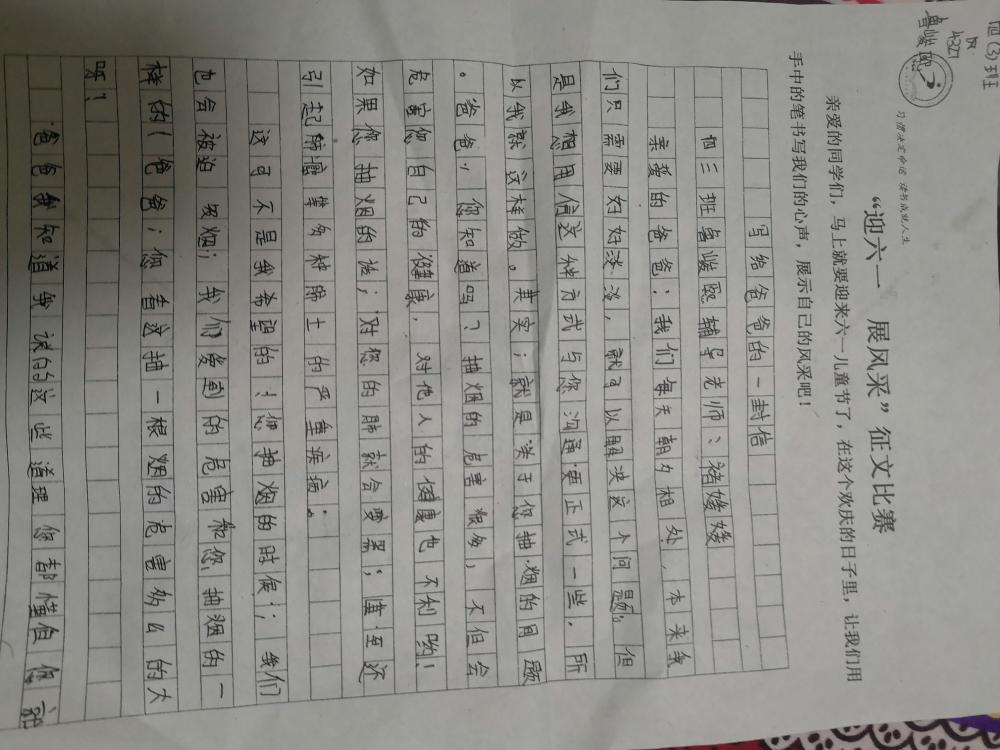 四(3)班
鲁峻熙
习惯决定命运 读书成就人生
“迎六一 展风采”征文比赛
亲爱的同学们，马上就要迎来六一儿童节了，在这个欢庆的日子里，让我们用
手中的笔书写我们的心声，展示自己的风采吧！
写给爸爸的一封信
四三班鲁峻熙辅导老师：褚媛媛
亲爱的爸爸：我们每天朝夕相处，本来我
们只需要好好谈谈，就可以解决这个问题。但
是我想用信这种方式与你沟通更正式一些，所
以我就这样做。其实；就是关于您抽烟的问题
。爸爸，您知道吗？抽烟的危害很多，不但会
危害您自己的健康，对他人的健康也不利哟！
如果您抽烟的话；对您的肺就会变黑；直至还
引起肺癌等多种肺上的严重疾病；
这可不是我希望的！您抽烟的时候；我们
也会被迫 吸烟；我们受到的危害和您抽烟的一
样的(爸爸；您看这抽一根烟的危害多么的大
呀！
爸爸我知道我说的这些道理 你都懂但你